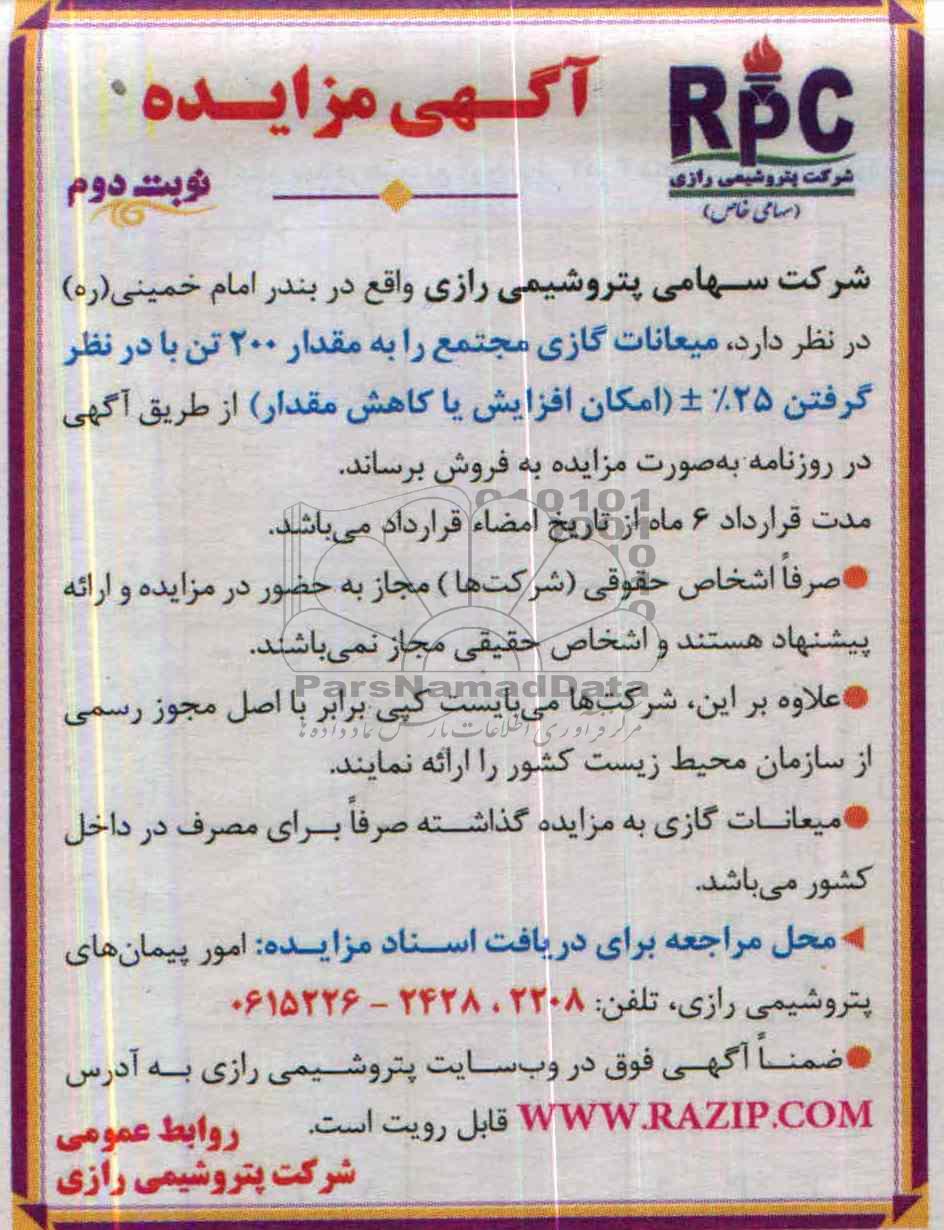 RPC
شرکت پتروشیمی رازی
(سهامی خاص)
آگهی مزایده
نوبت دوم
شرکت سهامی پتروشیمی رازی واقع در بندر امام خمینی(ره)
در نظر دارد، میعانات گازی مجتمع را به مقدار ۲۰۰ تن با در نظر
گرفتن ۲۵٪ ± (امکان افزایش یا کاهش مقدار) از طریق آگهی
در روزنامه به‌صورت مزایده به فروش برساند.
مدت قرارداد ۶ ماه از تاریخ امضاء قرارداد می‌باشد.
●صرفاً اشخاص حقوقی (شرکت‌ها) مجاز به حضور در مزایده و ارائه
پیشنهاد هستند و اشخاص حقیقی مجاز نمی‌باشند.
●علاوه بر این، شرکت‌ها می‌بایست کپی برابر با اصل مجوز رسمی
از سازمان محیط زیست کشور را ارائه نمایند.
●میعانات گازی به مزایده گذاشته صرفاً برای مصرف در داخل
کشور می‌باشد.
◄محل مراجعه برای دریافت اسناد مزایده: امور پیمان‌های
پتروشیمی رازی، تلفن: ۲۲۰۸ ، ۲۴۲۸ – ۰۶۱۵۲۲۶
●ضمناً آگهی فوق در وب‌سایت پتروشیمی رازی به آدرس
WWW.RAZIP.COM قابل رویت است.
روابط عمومی
شرکت پتروشیمی رازی
ParsNamadData